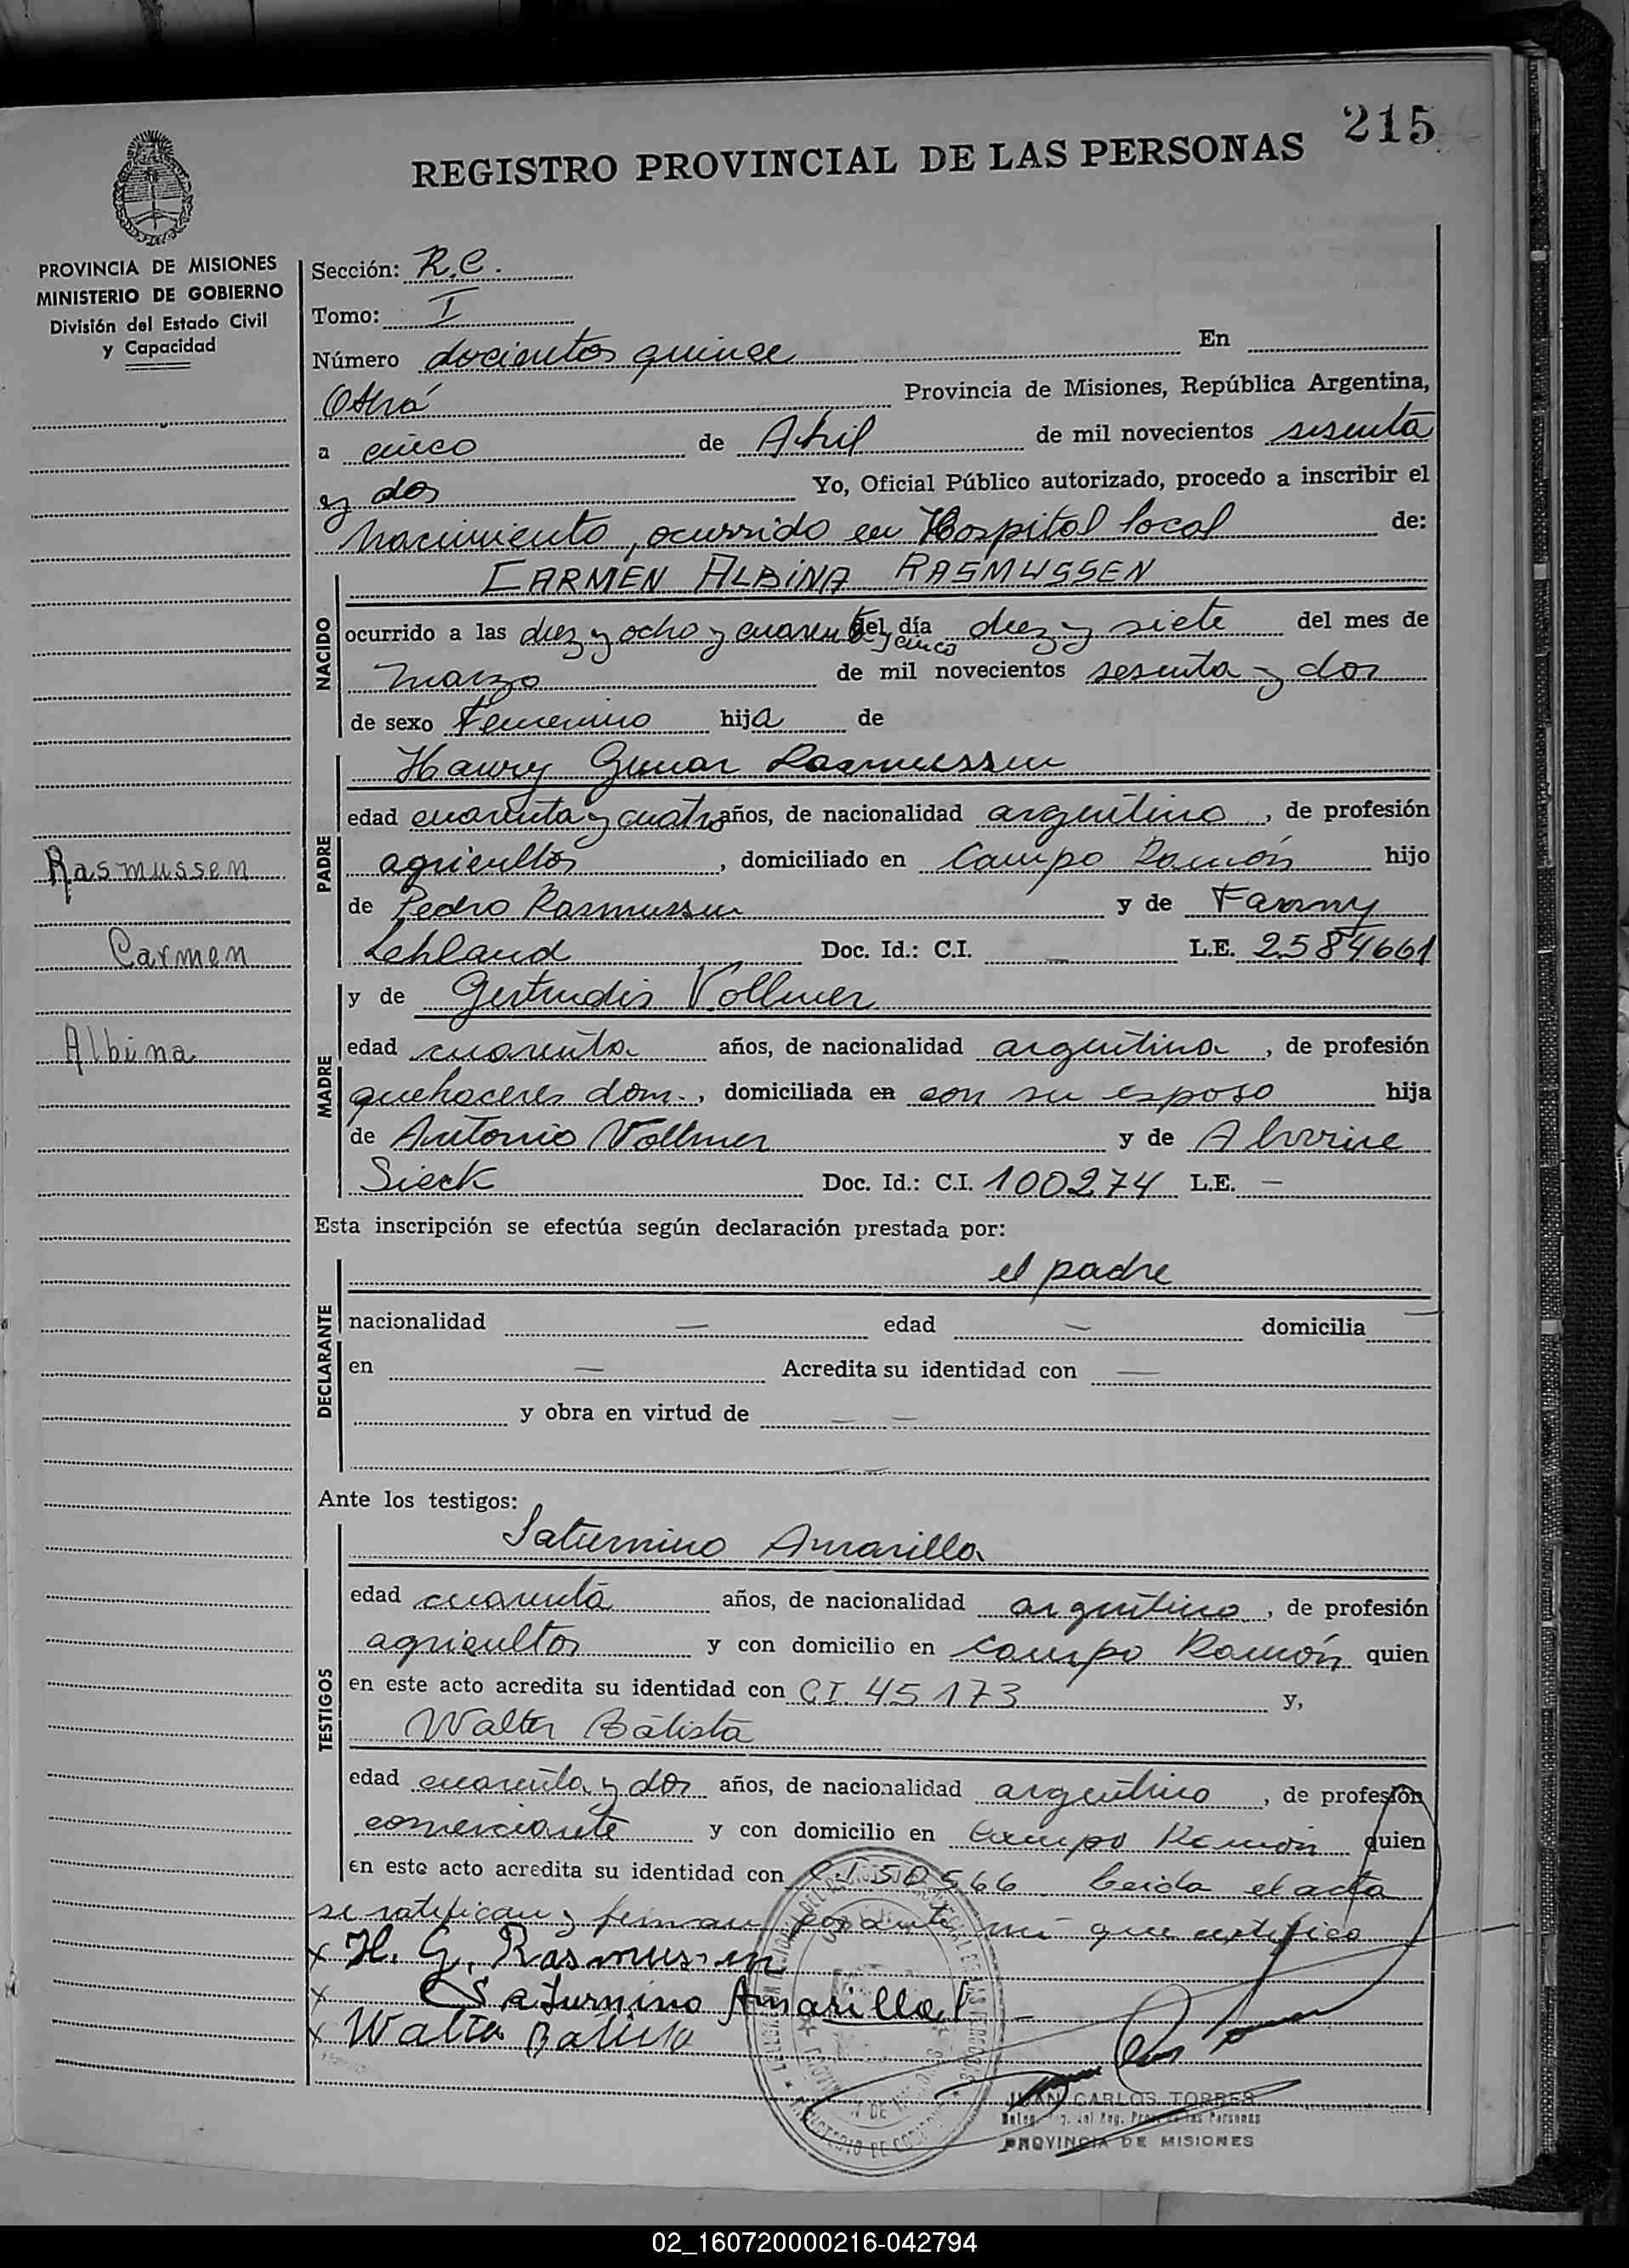 215
REGISTRO PROVINCIAL DE LAS PERSONAS
PROVINCIA DE MISIONES
MINISTERIO DE GOBIERNO
División del Estado Civil
y Capacidad
Rasmussen
Carmen
Albina
Sección: R.C.
Tomo: I
Número docientos quince En
Oberá Provincia de Misiones, República Argentina,
a cinco de Abril de mil novecientos sesenta
y dos Yo, Oficial Público autorizado, procedo a inscribir el
Nacimiento, ocurrido en Hospital local de:
CARMEN ALBINA RASMUSSEN
NACIDO
ocurrido a las diez y ocho y cuarenta y cinco del día diez y siete del mes de
marzo de mil novecientos sesenta y dos
de sexo Femenino hija de
PADRE
Haury Gunar Rasmussen
edad cuarenta y cuatro años, de nacionalidad argentino, de profesión
agricultor, domiciliado en Campo Ramón hijo
de Pedro Rasmussen y de Fanny
Lehland Doc. Id.: C.I. — L.E. 2584661
MADRE
y de Gertrudis Vollmer
edad cuarenta años, de nacionalidad argentina, de profesión
quehaceres dom., domiciliada en con su esposo hija
de Antonio Vollmer y de
Sieck Doc. Id.: C.I. 100274 L.E. —
Esta inscripción se efectúa según declaración prestada por:
DECLARANTE
el padre
nacionalidad — edad — domicilia —
en — Acredita su identidad con —
y obra en virtud de — —
— —
Ante los testigos:
TESTIGOS
Saturnino Amarilla
edad cuarenta años, de nacionalidad argentino, de profesión
agricultor y con domicilio en Campo Ramón quien
en este acto acredita su identidad con C.I. 45173 y,
Walter Bátista
edad cuarenta y dos años, de nacionalidad argentino, de profesión
comerciante y con domicilio en Campo Ramón quien
en este acto acredita su identidad con C.I 50566. Leida el acta
se ratifican y firman por ante mi que certifico
x H. G. Rasmussen
x Saturnino Amarilla
x Walter Batista
JUAN CARLOS TORRES
Reg. Prov. de las Personas
PROVINCIA DE MISIONES
02_160720000216-042794